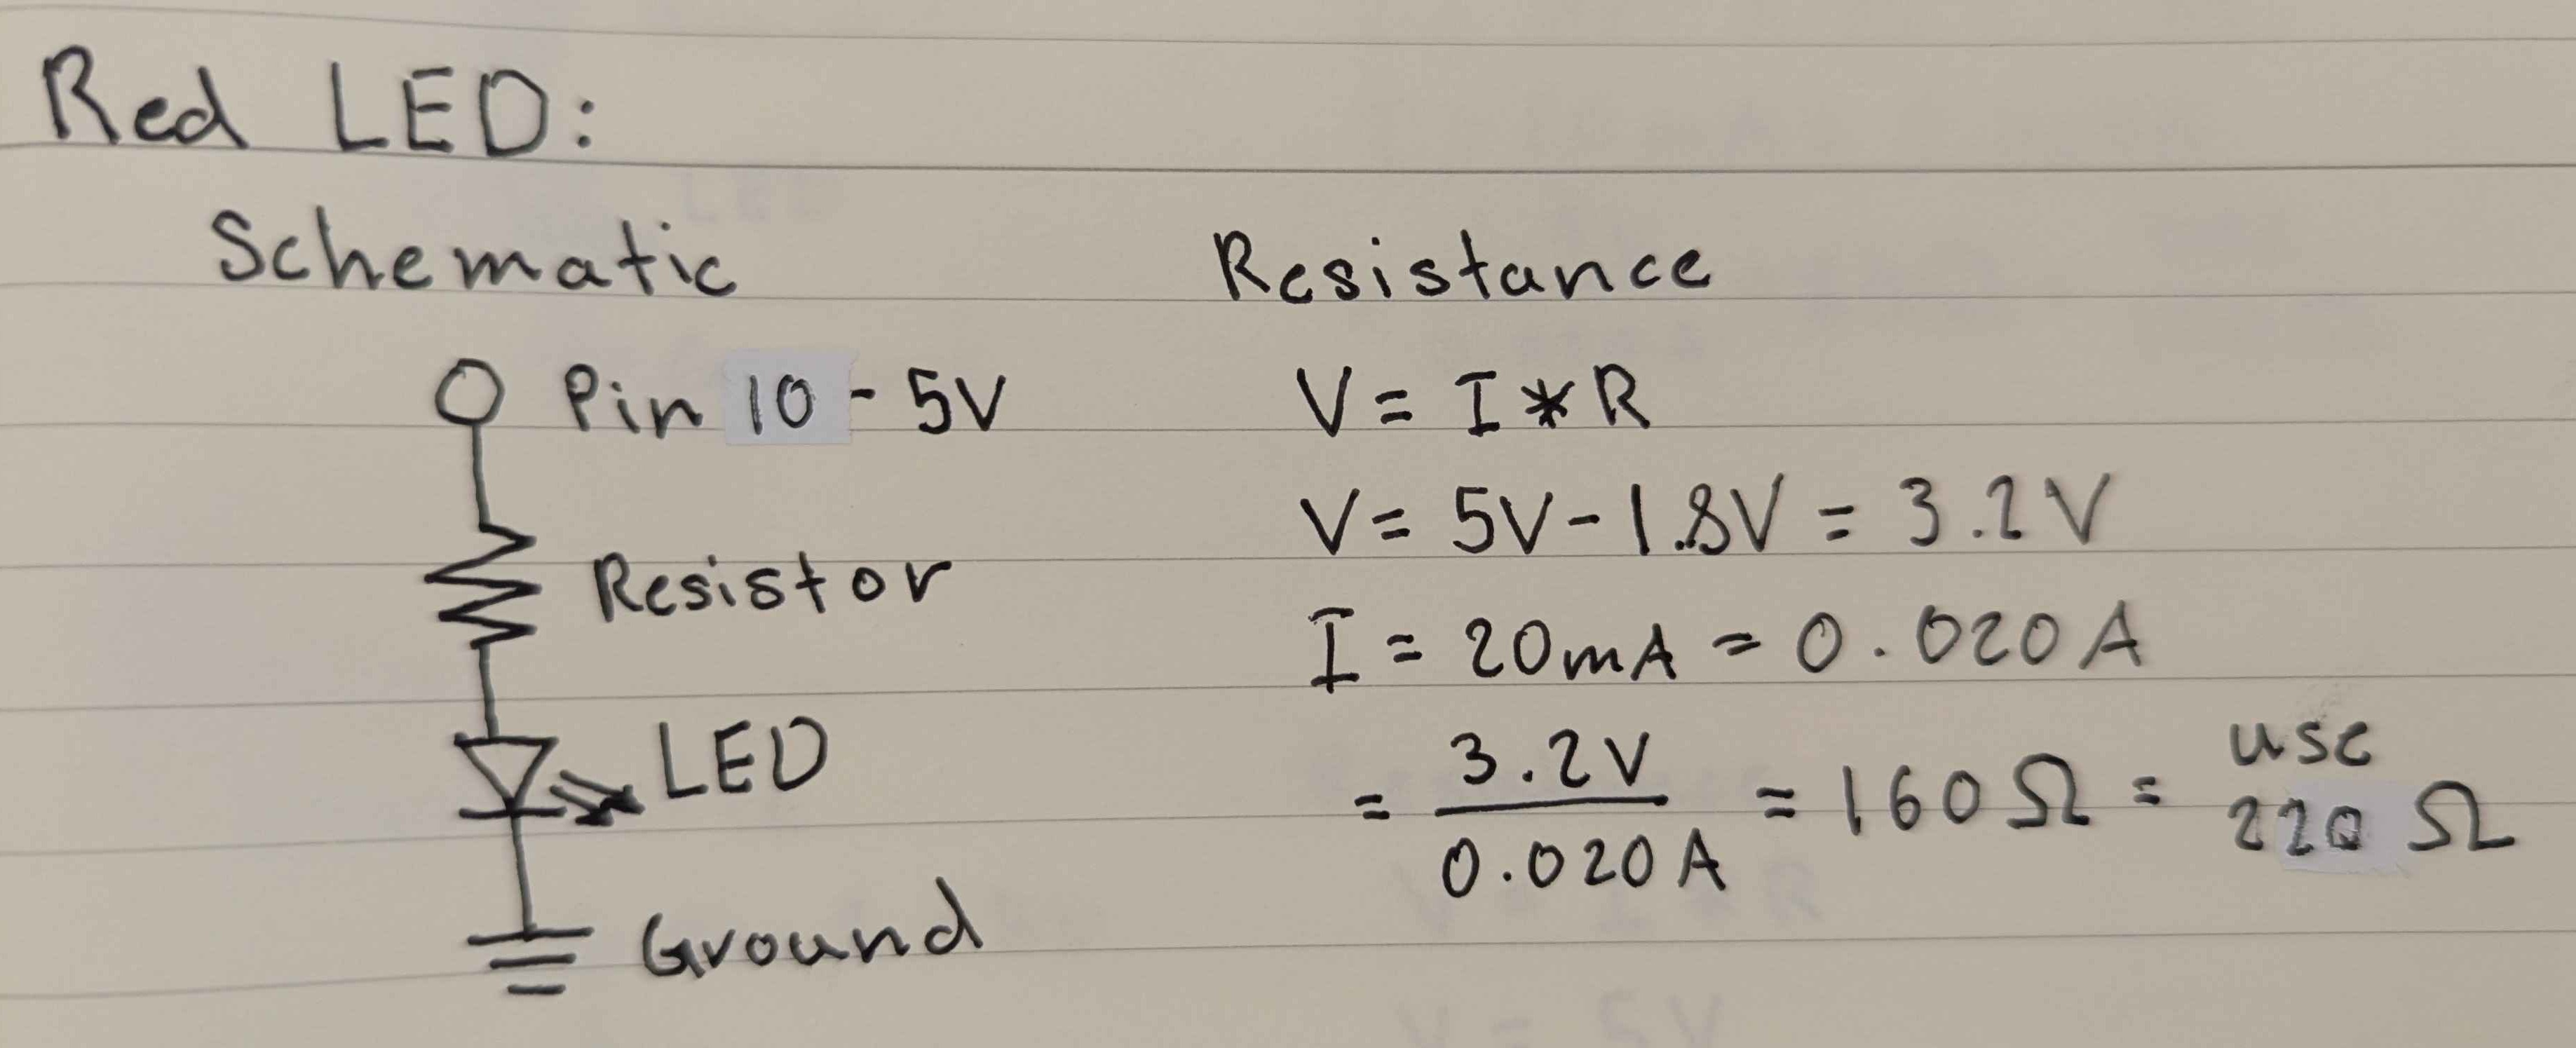 Red LED:
Schematic
Pin 10 - 5V
Resistor
LED
Ground
Resistance
V = I * R
V = 5V - 1.8V = 3.2V
I = 20mA = 0.020A
= 3.2V / 0.020A = 160 Ω = use 220 Ω